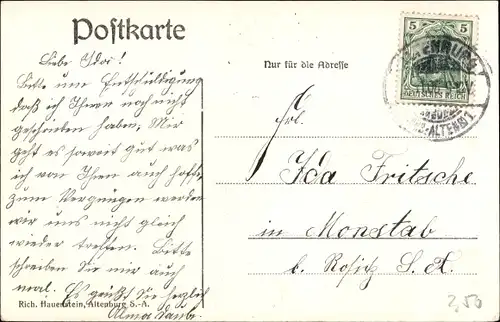 Postkarte
Liebe Ida!
Bitte um Entschuldigung
daß ich Ihnen noch nicht
geschrieben habe. Mir
geht es soweit gut was
ich von Ihnen auch hoffe
zum Vergnügen werden
wir uns nicht gleich
wieder treffen. Bitte
schreiben Sie mir auch
mal. Es grüßt Sie herzlich
Alma
Rich. Hauenstein, Altenburg S.-A.
Nur für die Adresse
5 5
DEUTSCHES REICH
Frl.
Ida Fritsche
in Monstab
b. Rositz S. A.
2,50